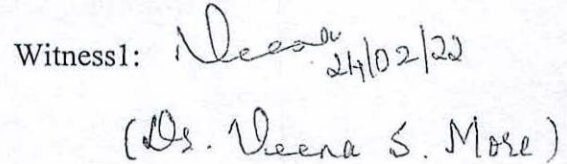 Witness1: Veena
24/02/22
(Dr. Veena S. More)